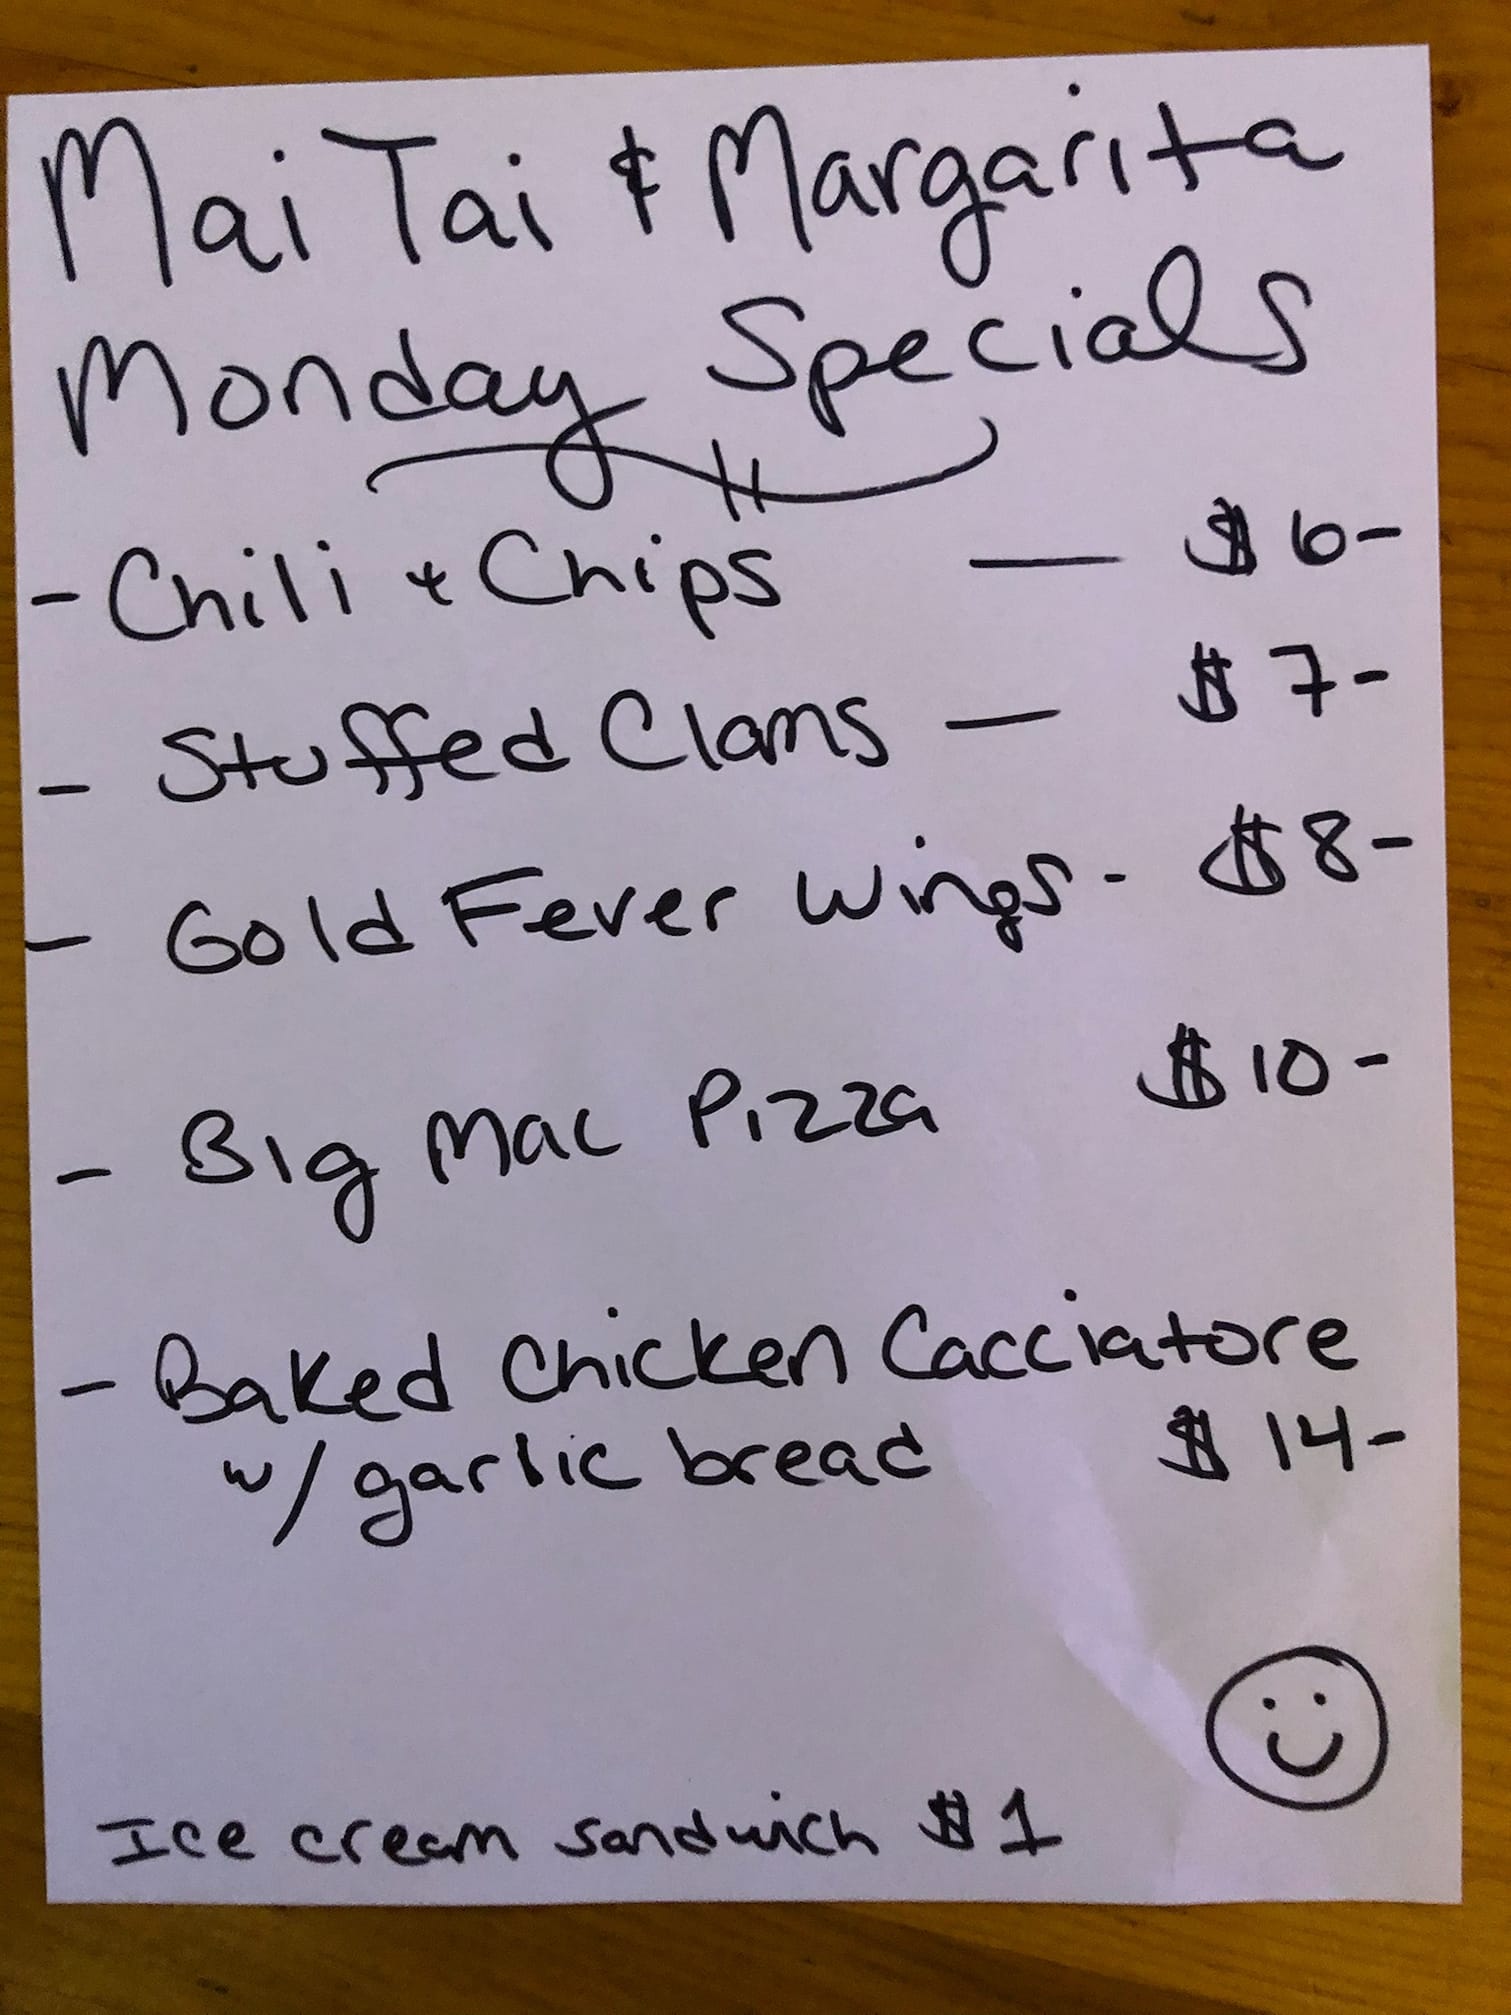 Mai Tai & Margarita
Monday Specials
- Chili & Chips — $6-
- Stuffed Clams — $7-
- Gold Fever Wings - $8-
- Big Mac Pizza $10-
- Baked Chicken Cacciatore
w/ garlic bread $14-
Ice cream sandwich $1